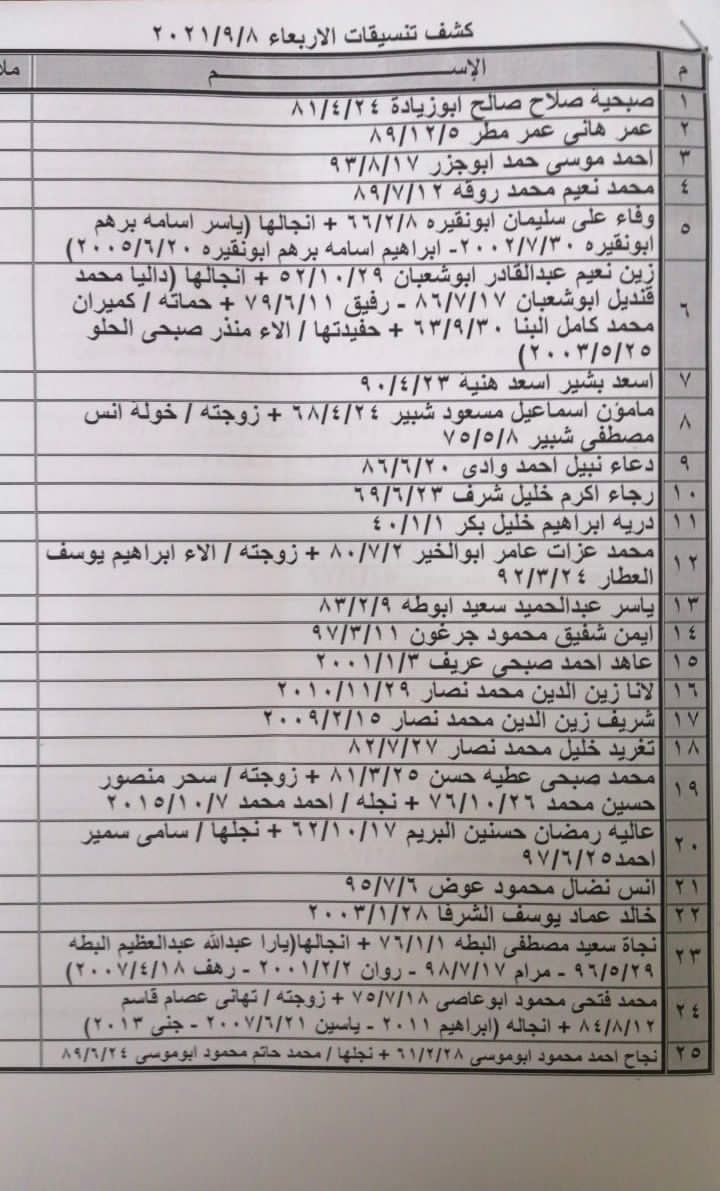 كشف تنسيقات الاربعاء ٢٠٢١/٩/٨
م الإســـــــم ملا
١ صبحية صلاح صالح ابوزيادة ٨١/٤/٢٤
٢ عمر هانى عمر مطر ٨٩/١٢/٥
٣ احمد موسى حمد ابوجزر ٩٣/٨/١٧
٤ محمد نعيم محمد روقه ٨٩/٧/١٢
٥ وفاء على سليمان ابونقيره ٦٦/٢/٨ + انجالها (ياسر اسامه برهم
ابونقيره ٢٠٠٢/٧/٣٠- ابراهيم اسامه برهم ابونقيره ٢٠٠٥/٦/٢٠)
٦ زين نعيم عبدالقادر ابوشعبان ٥٢/١٠/٢٩ + انجالها (داليا محمد
قنديل ابوشعبان ٨٦/٧/١٧ - رفيق ٧٩/٦/١١ + حماته / كميران
محمد كامل البنا ٦٣/٩/٣٠ + حفيدتها / الاء منذر صبحى الحلو
٢٠٠٣/٥/٢٥)
٧ اسعد بشير اسعد هنية ٩٠/٤/٢٣
٨ مامؤن اسماعيل مسعود شبير ٦٨/٤/٢٤ + زوجته / خولة انس
مصطفى شبير ٧٥/٥/٨
٩ دعاء نبيل احمد وادى ٨٦/٦/٢٠
١٠ رجاء اكرم خليل شرف ٦٩/٦/٢٣
١١ دريه ابراهيم خليل بكر ٤٠/١/١
١٢ محمد عزات عامر ابوالخير ٨٠/٧/٢ + زوجته / الاء ابراهيم يوسف
العطار ٩٢/٣/٢٤
١٣ ياسر عبدالحميد سعيد ابوطه ٨٣/٢/٩
١٤ ايمن شفيق محمود جرغون ٩٧/٣/١١
١٥ عاهد احمد صبحى عريف ٢٠٠١/١/٣
١٦ لانا زين الدين محمد نصار ٢٠١٠/١١/٢٩
١٧ شريف زين الدين محمد نصار ٢٠٠٩/٢/١٥
١٨ تغريد خليل محمد نصار ٨٢/٧/٢٧
١٩ محمد صبحى عطيه حسن ٨١/٣/٢٥ + زوجته / سحر منصور
حسين محمد ٧٦/١٠/٢٦ + نجله / احمد محمد ٢٠١٥/١٠/٧
٢٠ عاليه رمضان حسنين البريم ٦٢/١٠/١٧ + نجلها / سامى سمير
احمد٩٧/٦/٢٥
٢١ انس نضال محمود عوض ٩٥/٧/٦
٢٢ خالد عماد يوسف الشرفا ٢٠٠٣/١/٢٨
٢٣ نجاة سعيد مصطفى البطه ٧٦/١/١ + انجالها(يارا عبدالله عبدالعظيم البطه
٩٦/٥/٢٩ - مرام ٩٨/٧/١٧ - روان ٢٠٠١/٢/٢ - رهف ٢٠٠٧/٤/١٨)
٢٤ محمد فتحى محمود ابوعاصى ٧٥/٧/١٨ + زوجته / تهانى عصام قاسم
٨٤/٨/١٢ + انجاله (ابراهيم ٢٠١١ - ياسين ٢٠٠٧/٦/٢١ - جنى ٢٠١٣)
٢٥ نجاح احمد محمود ابوموسى ٦١/٢/٢٨ + نجلها / محمد حاتم محمود ابوموسى ٨٩/٦/٢٤